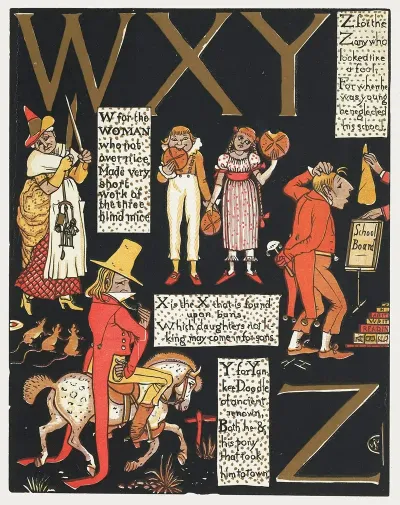 W X Y
Z for the
Zany who
looked like
a fool,
For when he
was young
he neglected
his school.
W for the
WOMAN
who not
over nice,
Made very
short
work of
the three
blind mice
School
Board
X is the X that is found
upon buns,
Which daughters not li-
king may come in for sons
Y for Yan-
kee Doodle
of ancient
renown,
Both he &
his pony
that took
him to town
Z